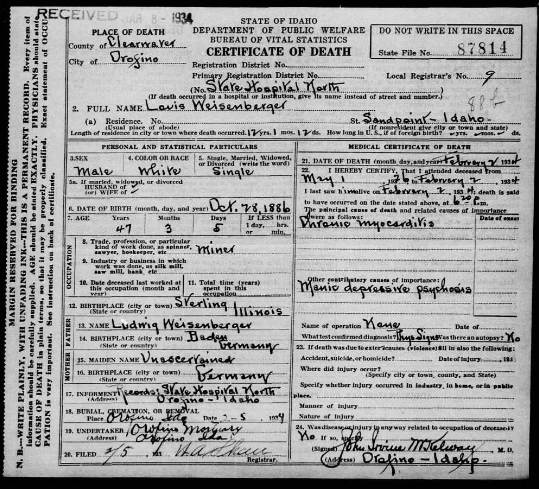 RECEIVED MAR 8 - 1934
STATE OF IDAHO
DEPARTMENT OF PUBLIC WELFARE
BUREAU OF VITAL STATISTICS
CERTIFICATE OF DEATH
DO NOT WRITE IN THIS SPACE
State File No. 87814
PLACE OF DEATH
County of Clearwater
City of Orofino
Registration District No.
Primary Registration District No.
Local Registrar's No. 9
(No. State Hospital North
(If death occurred in a hospital or institution, give its name instead of street and number.)
2. FULL NAME Louis Weisenberger
(a) Residence. No. St. Sandpoint - Idaho.
(Usual place of abode) (If nonresident give city or town and state)
Length of residence in city or town where death occurred. 12 yrs. 1 mos. 12 ds. How long in U. S., if of foreign birth? yrs. mos. ds.
PERSONAL AND STATISTICAL PARTICULARS
3. SEX Male
4. COLOR OR RACE White
5. Single, Married, Widowed, or Divorced (write the word) Single
5a. If married, widowed, or divorced
HUSBAND of
(or) WIFE of
6. DATE OF BIRTH (month, day, and year) Oct. 28, 1886
7. AGE Years 47 Months 3 Days 5 If LESS than 1 day, hrs. or min.
OCCUPATION
8. Trade, profession, or particular kind of work done, as spinner, sawyer, bookkeeper, etc. Miner
9. Industry or business in which work was done, as silk mill, saw mill, bank, etc.
10. Date deceased last worked at this occupation (month and year)
11. Total time (years) spent in this occupation
12. BIRTHPLACE (city or town) Sterling
(State or country) Illinois
FATHER
13. NAME Ludwig Weisenberger
14. BIRTHPLACE (city or town) Baden
(State or country) Germany
MOTHER
15. MAIDEN NAME Unascertained
16. BIRTHPLACE (city or town)
(State or country) Germany
17. INFORMANT Records: State Hospital North
(Address) Orofino - Idaho
18. BURIAL, CREMATION, OR REMOVAL
Place Orofino Ida Date 2-5 1934
19. UNDERTAKER Orofino Mortuary
(Address) Orofino Ida
20. FILED 2/5, 193
Registrar.
MEDICAL CERTIFICATE OF DEATH
21. DATE OF DEATH (month, day, and year) February 2 1934
22. I HEREBY CERTIFY, That I attended deceased from
May 1 to February 2, 1934
I last saw him alive on February 2, 1934, death is said
to have occurred on the date stated above, at m.
The principal cause of death and related causes of importance
were as follows: Date of onset
Chronic myocarditis
Other contributory causes of importance:
Manic depressive psychosis
Name of operation None
What test confirmed diagnosis? Phys Signs Was there an autopsy? No
23. If death was due to external causes (violence) fill in also the following:
Accident, suicide, or homicide? Date of injury 193
Where did injury occur?
(Specify city or town, county, and State)
Specify whether injury occurred in industry, in home, or in public place.
Manner of injury
Nature of injury
24. Was disease or injury in any way related to occupation of deceased?
No If so, specify
(Signed) John Irvine McKelway, M. D.
(Address) Orofino - Idaho.
MARGIN RESERVED FOR BINDING
N. B.—WRITE PLAINLY, WITH UNFADING INK—THIS IS A PERMANENT RECORD. Every item of information should be carefully supplied. AGE should be stated EXACTLY. PHYSICIANS should state CAUSE OF DEATH in plain terms, so that it may be properly classified. Exact statement of OCCUPATION is very important. See instruction on back of certificate.